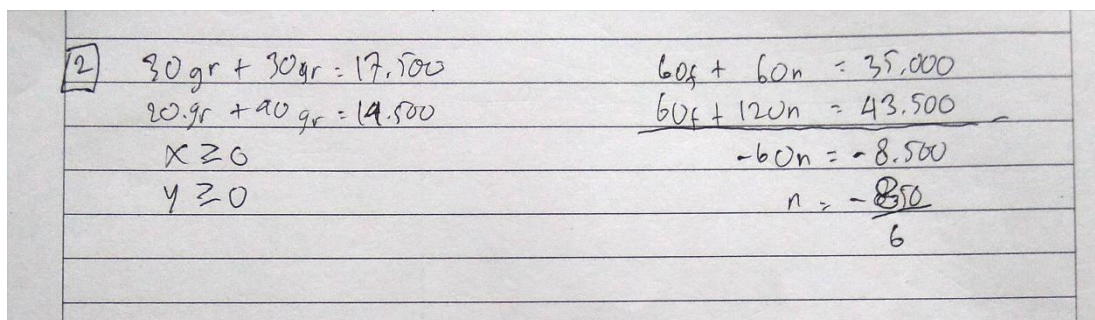 2 30 gr + 30 gr = 17.500
20.gr + 40 gr = 14.500
x ≥ 0
y ≥ 0
60f + 60n = 35.000
60f + 120n = 43.500
-60n = -8.500
n = -850
6